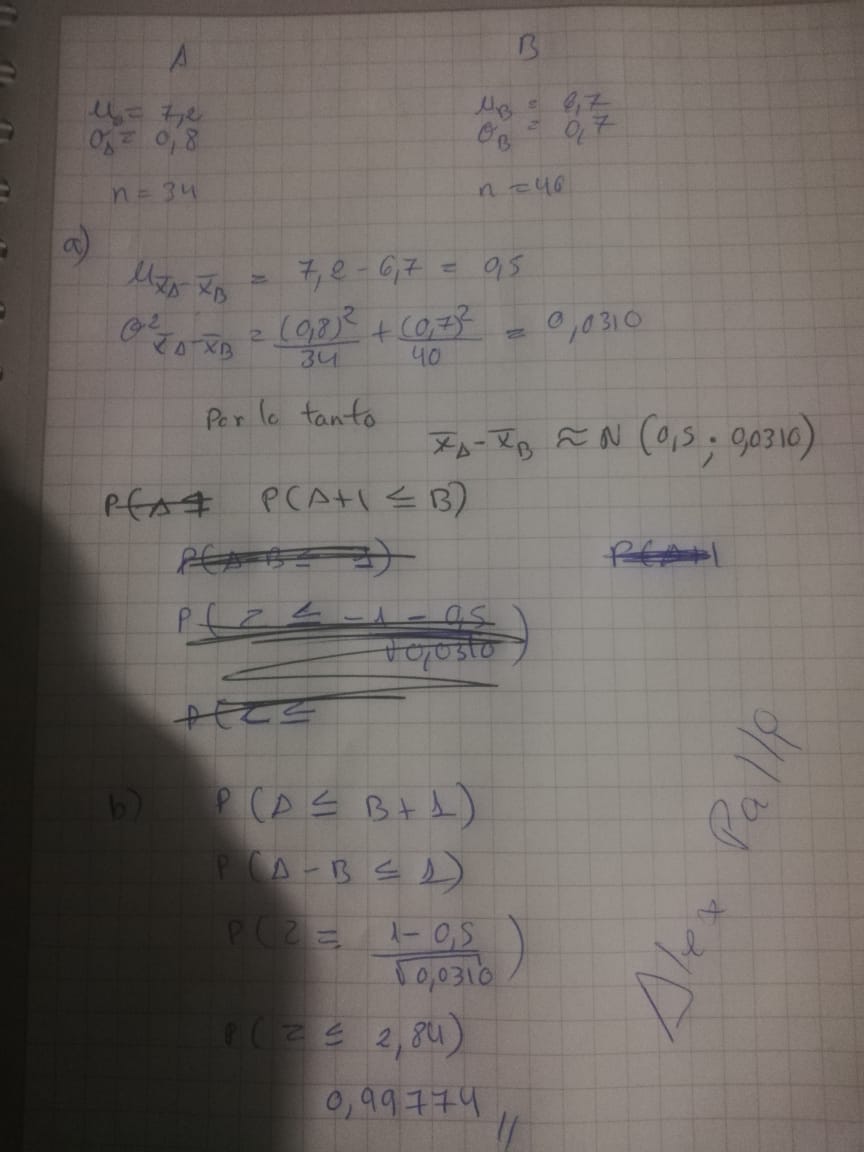 A B
μₐ= 7,2 μ_B = 6,7
σ_A= 0,8 σ_B = 0,7
n = 34 n = 40
a)
μ_x̄A-x̄B = 7,2 - 6,7 = 0,5
σ²_x̄A-x̄B = (0,8)²/34 + (0,7)²/40 = 0,0310
Por lo tanto
x̄_A - x̄_B ≈ N (0,5 ; 0,0310)
P(A P(A+1 ≤ B)
P(A-B ≤ 1) P(A+1
P( z ≤ -1 - 0,5/√0,0310 )
P(z ≤
b) P (A ≤ B+1)
P (A - B ≤ 1)
P (z = 1-0,5/√0,0310 )
P ( z ≤ 2,84)
0,99774 //
Alex